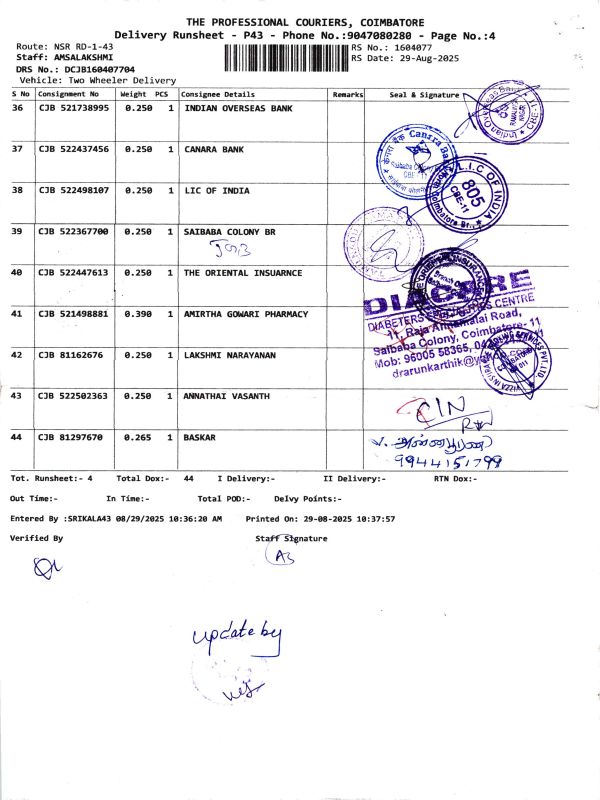 THE PROFESSIONAL COURIERS, COIMBATORE
Delivery Runsheet - P43 - Phone No.:9047080280 - Page No.:4
Route: NSR RD-1-43
RS No.: 1604077
Staff: AMSALAKSHMI
RS Date: 29-Aug-2025
DRS No.: DCJB160407704
Vehicle: Two Wheeler Delivery
S No Consignment No Weight PCS Consignee Details Remarks Seal & Signature
36 CJB 521738995 0.250 1 INDIAN OVERSEAS BANK
37 CJB 522437456 0.250 1 CANARA BANK
Canara Bank
38 CJB 522498107 0.250 1 LIC OF INDIA
L.I.C OF INDIA
805
CBE-11
39 CJB 522367700 0.250 1 SAIBABA COLONY BR
40 CJB 522447613 0.250 1 THE ORIENTAL INSUARNCE
DIACARE
41 CJB 521498881 0.390 1 AMIRTHA GOWARI PHARMACY
Raja Annamalai Road,
Saibaba Colony, Coimbatore- 11
Mob: 96005 58365,
42 CJB 81162676 0.250 1 LAKSHMI NARAYANAN
43 CJB 522502363 0.250 1 ANNATHAI VASANTH
44 CJB 81297670 0.265 1 BASKAR
9944151799
Tot. Runsheet:- 4 Total Dox:- 44 I Delivery:- II Delivery:- RTN Dox:-
Out Time:- In Time:- Total POD:- Delvy Points:-
Entered By :SRIKALA43 08/29/2025 10:36:20 AM Printed On: 29-08-2025 10:37:57
Verified By Staff Signature
update by